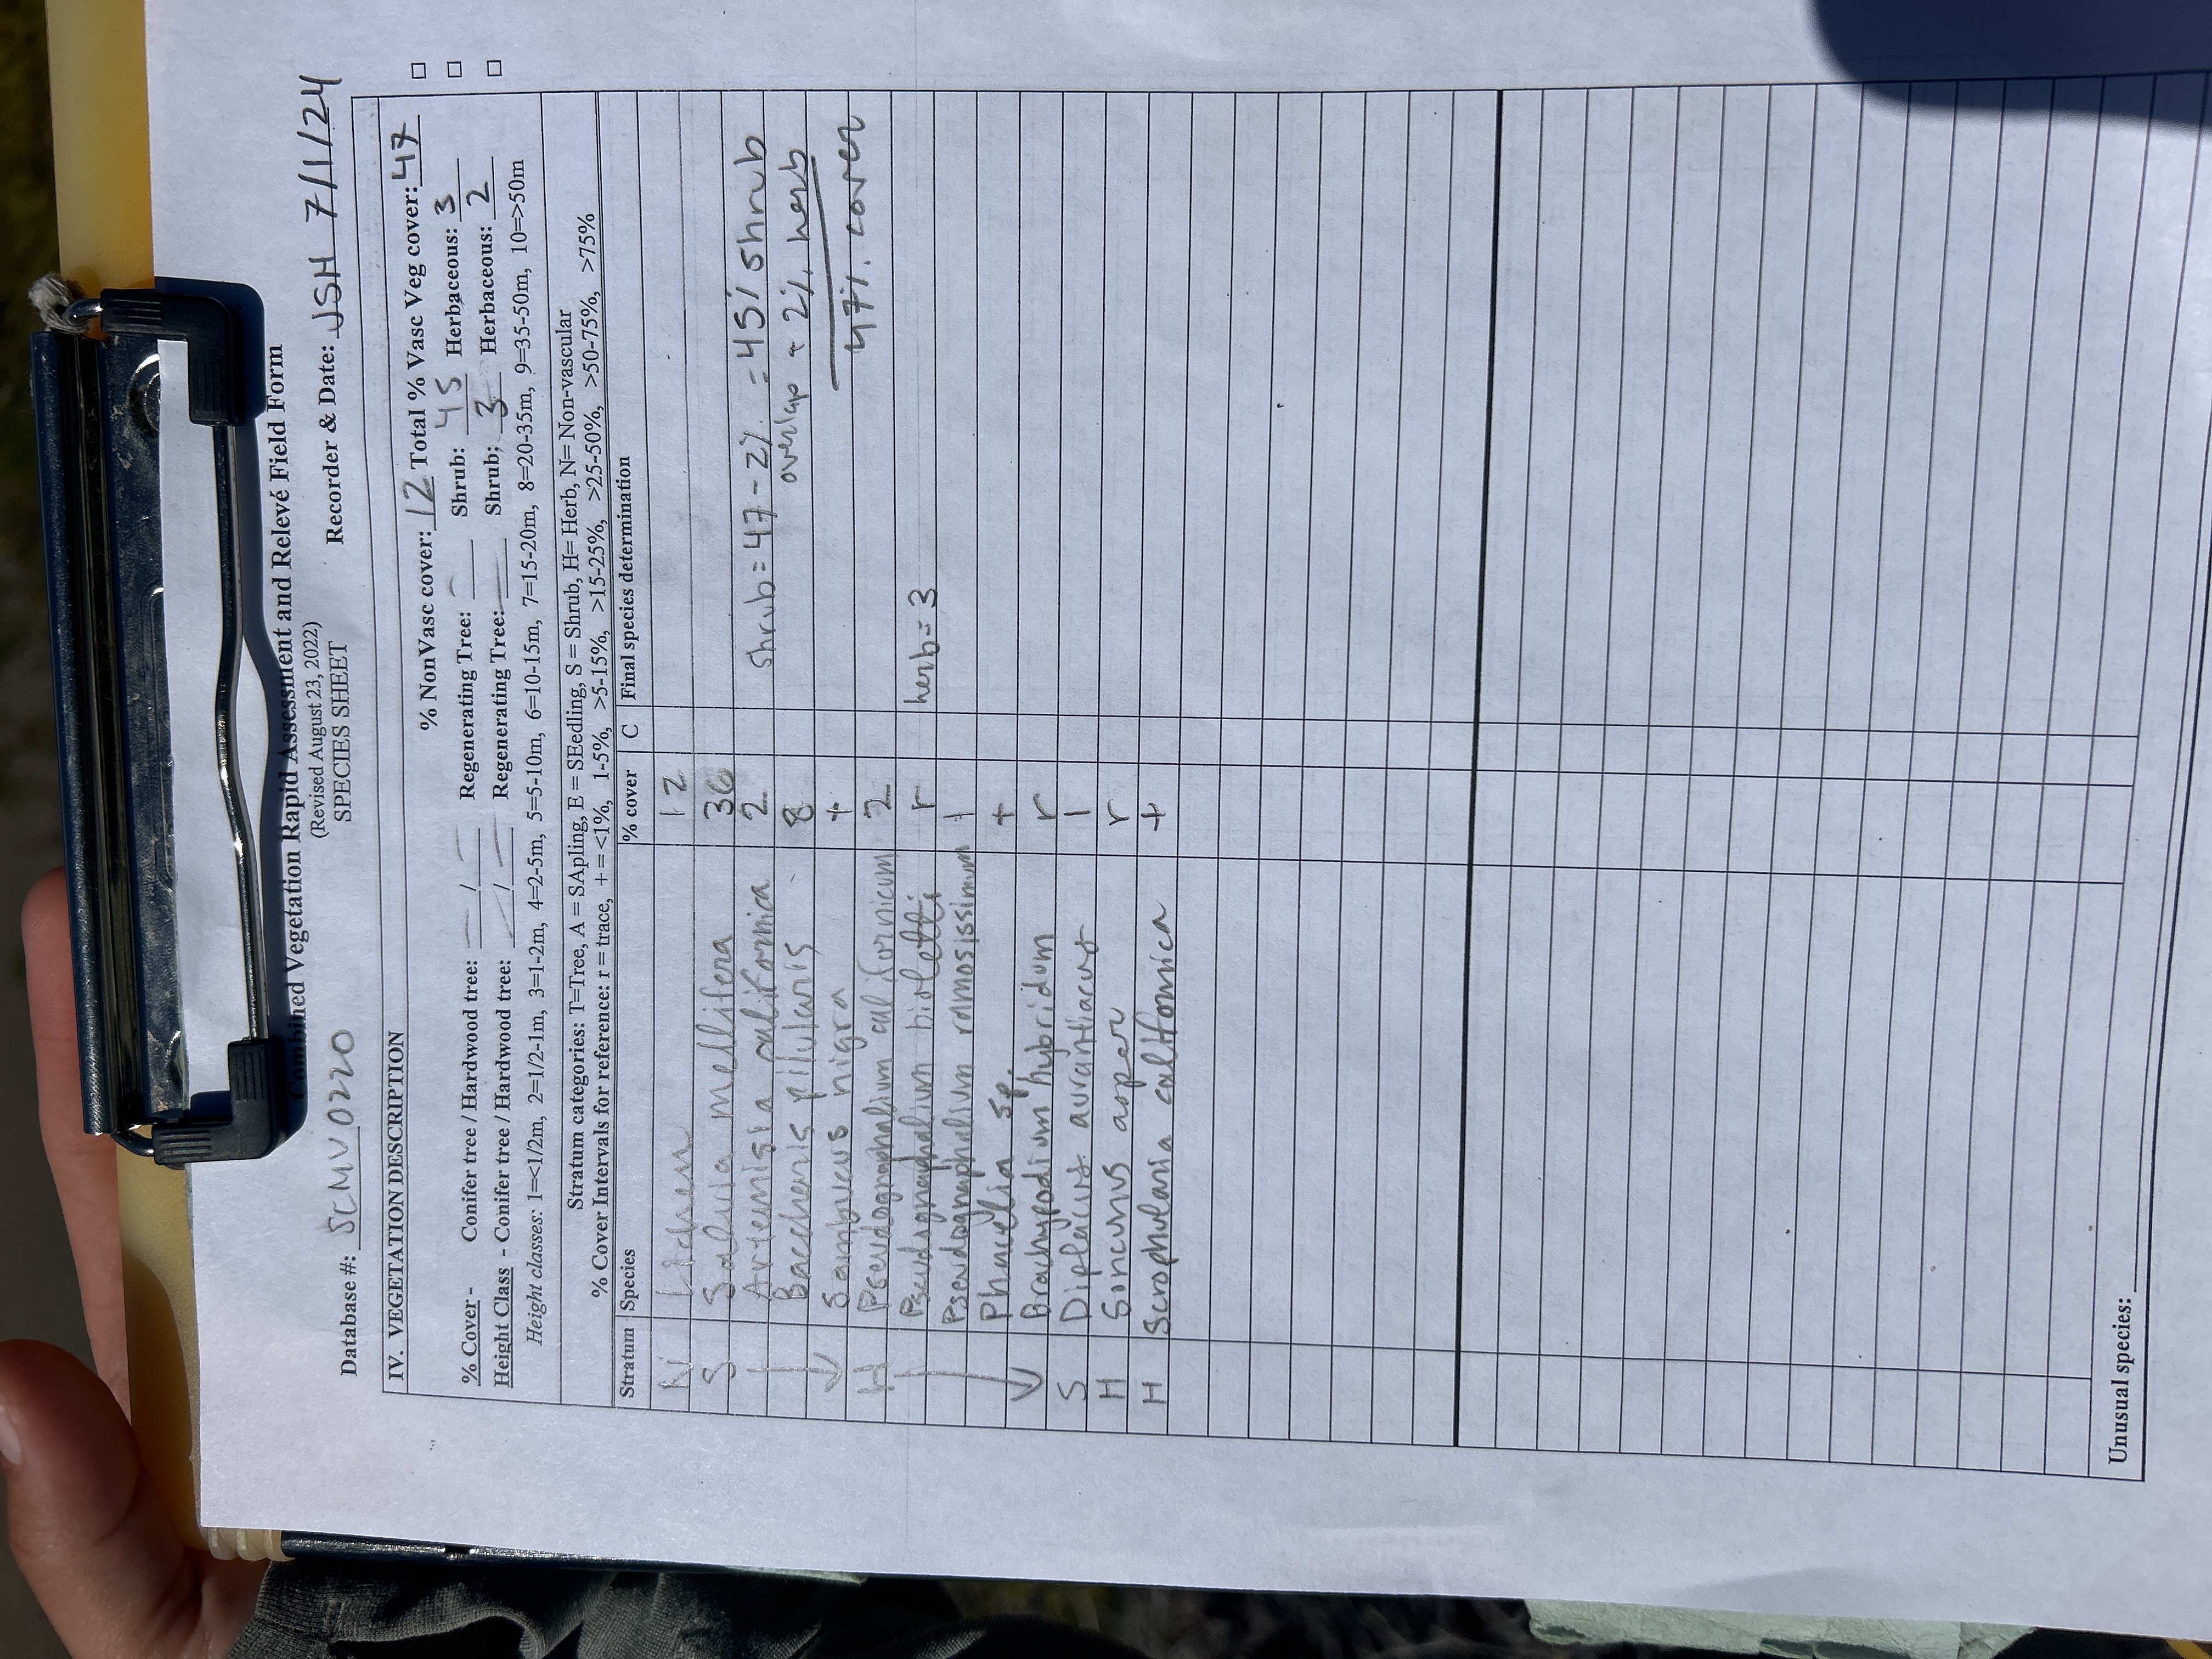 Combined Vegetation Rapid Assessment and Relevé Field Form
(Revised August 23, 2022)
SPECIES SHEET
Database #: SCMV0220 Recorder & Date: JSH 7/1/24
IV. VEGETATION DESCRIPTION
% NonVasc cover: 12 Total % Vasc Veg cover: 47
% Cover - Conifer tree / Hardwood tree: — / — Regenerating Tree: — Shrub: 45 Herbaceous: 3
Height Class - Conifer tree / Hardwood tree: — / — Regenerating Tree: — Shrub: 3 Herbaceous: 2
Height classes: 1=<1/2m, 2=1/2-1m, 3=1-2m, 4=2-5m, 5=5-10m, 6=10-15m, 7=15-20m, 8=20-35m, 9=35-50m, 10=>50m
Stratum categories: T=Tree, A = SApling, E = SEedling, S = Shrub, H= Herb, N= Non-vascular
% Cover Intervals for reference: r = trace, + = <1%, 1-5%, >5-15%, >15-25%, >25-50%, >50-75%, >75%
Stratum Species % cover C Final species determination
N Lichen 12
S Salvia mellifera 36
Artemisia californica 2 shrub = 47 - 2% = 45% shrub
Baccharis pilularis 8 overlap + 2% herb
Sambucus nigra + 47% cover
H Pseudognaphalium californicum 2
Pseudognaphalium bioletti r herb = 3
Pseudognaphalium ramosissimum 1
Phacelia sp. +
Brachypodium hybridum r
S Diplacus aurantiacus 1
H Soncuns asper r
H Scrophularia californica +
Unusual species: